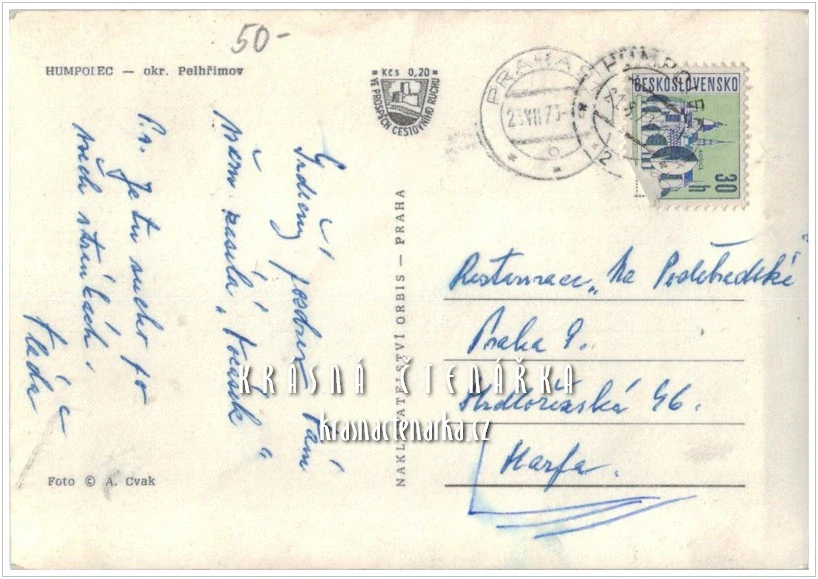 50-
HUMPOLEC — okr. Pelhřimov
Kčs 0,20
VE PROSPĚCH CESTOVNÍHO RUCHU
PRAHA
HUMPOLEC
2
ČESKOSLOVENSKO
30 h
Srdečný pozdrav Vám
všem zasílá „
Ps. Je tu sucho po
Vláďa
NAKLADATELSTVÍ ORBIS — PRAHA
Restaurace „Na Poděbradské
Praha 9.
46.
Harfa.
KRÁSNÁ ČTENÁŘKA
krasnactenarka.cz
Foto © A. Cvak